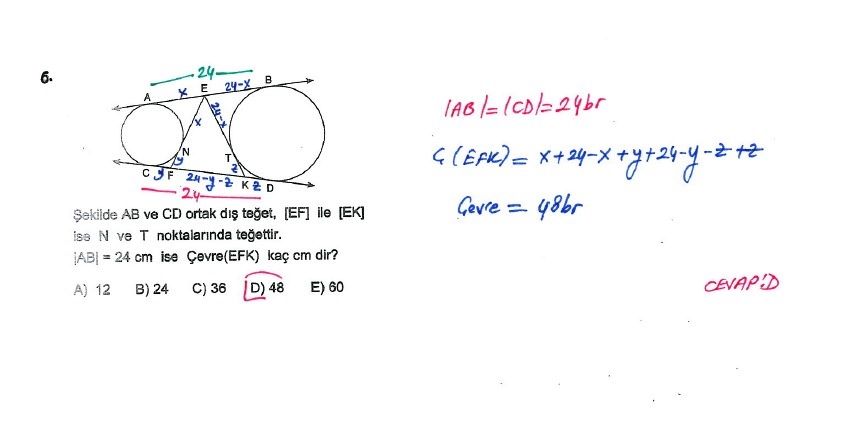 6.
24
A x E 24-x B
x 24-x
N T
y z
C y F 24-y-z K z D
24
Şekilde AB ve CD ortak dış teğet, [EF] ile [EK]
ise N ve T noktalarında teğettir.
|AB| = 24 cm ise Çevre(EFK) kaç cm dir?
A) 12 B) 24 C) 36 D) 48 E) 60
|AB|=|CD|=24br
Ç(EFK)= x+24-x+y+24-y-z+z
Çevre = 48br
CEVAP:D